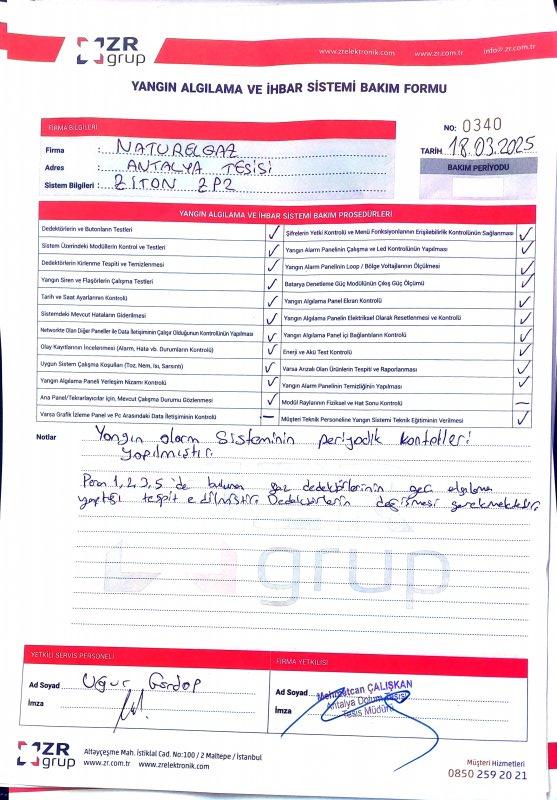 ZR
grup
www.zrelektronik.com www.zr.com.tr info@ zr.com.tr
YANGIN ALGILAMA VE İHBAR SİSTEMİ BAKIM FORMU
FİRMA BİLGİLERİ
NO: 0340
Firma : NATURELGAZ
TARİH 18.03.2025
Adres : ANTALYA TESİSİ
BAKIM PERİYODU
Sistem Bilgileri : ZİTON ZP2
YANGIN ALGILAMA VE İHBAR SİSTEMİ BAKIM PROSEDÜRLERİ
Dedektörlerin ve Butonların Testleri ✓
Şifrelerin Yetki Kontrolü ve Menü Fonksiyonlarının Erişilebilirlik Kontrolünün Sağlanması ✓
Sistem Üzerindeki Modüllerin Kontrol ve Testleri ✓
Yangın Alarm Panelinin Çalışma ve Led Kontrolünün Yapılması ✓
Dedektörlerin Kirlenme Tespiti ve Temizlenmesi ✓
Yangın Alarm Panelinin Loop / Bölge Voltajlarının Ölçülmesi ✓
Yangın Siren ve Flaşörlerin Çalışma Testleri ✓
Batarya Denetleme Güç Modülünün Çıkış Güç Ölçümü ✓
Tarih ve Saat Ayarlarının Kontrolü ✓
Yangın Algılama Panel Ekran Kontrolü ✓
Sistemdeki Mevcut Hataların Giderilmesi ✓
Yangın Algılama Panelin Elektriksel Olarak Resetlenmesi ve Kontrolü ✓
Networkte Olan Diğer Paneller ile Data İletişiminin Çalışır Olduğunun Kontrolünün Yapılması ✓
Yangın Algılama Panel içi Bağlantıların Kontrolü ✓
Olay Kayıtlarının İncelenmesi (Alarm, Hata vb. Durumların Kontrolü) ✓
Enerji ve Akü Test Kontrolü ✓
Uygun Sistem Çalışma Koşulları (Toz, Nem, Isı, Sarsıntı) ✓
Varsa Arızalı Olan Ürünlerin Tespiti ve Raporlanması ✓
Yangın Algılama Paneli Yerleşim Nizamı Kontrolü ✓
Yangın Alarm Panelinin Temizliğinin Yapılması ✓
Ana Panel/Tekrarlayıcılar İçin, Mevcut Çalışma Durumu Gözlenmesi ✓
Modül Raylarının Fiziksel ve Hat Sonu Kontrolü —
Varsa Grafik İzleme Panel ve Pc Arasındaki Data İletişiminin Kontrolü —
Müşteri Teknik Personeline Yangın Sistemi Teknik Eğitiminin Verilmesi ✓
Notlar Yangın alarm Sisteminin periyodik kontrolleri
yapılmıştır.
1, 2, 3, 5 'de bulunan gaz dedektörlerinin geç algılama
yaptığı tespit edilmiştir. Dedektörlerin değişmesi gerekmektedir.
grup
YETKİLİ SERVİS PERSONELİ
FİRMA YETKİLİSİ
Ad Soyad Uğur
İmza
Ad Soyad ÇALIŞKAN
Antalya Dolum Tesisi
İmza Tesis Müdürü
ZR
grup
Altayçeşme Mah. İstiklal Cad. No:100 / 2 Maltepe / İstanbul
www.zr.com.tr www.zrelektronik.com
Müşteri Hizmetleri
0850 259 20 21